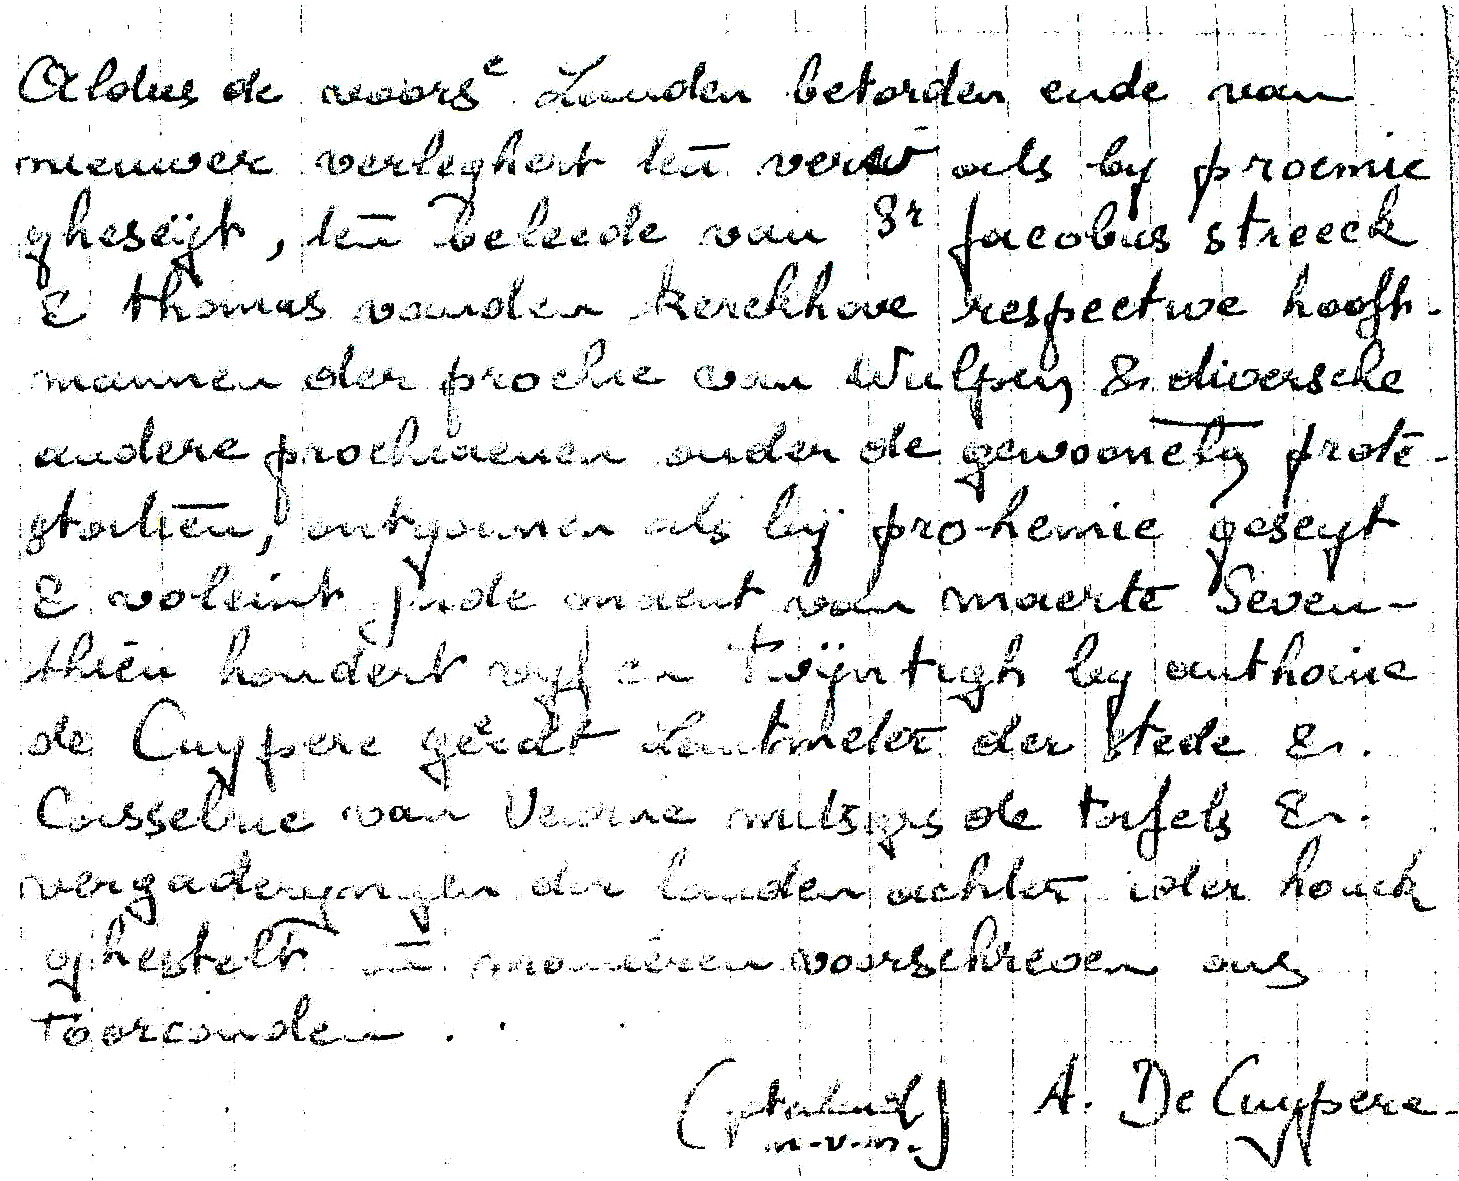 Aldus de voorse Landen betorden ende van
nieuwer verleghert ten verw als by proemie
gheseijt, ten beleede van Sr Jacobus Streeck
& thomas vanden kerckhove respective hooft-
mannen der prochie van Wulpen & diversche
andere prochiaenen onder de gewoonel prote-
statien, ontgonnen als bij prohemie geseyt
& voleint jnde maent van maerte Seven-
thien hondert vyf en Twijntigh by anthoine
de Cuypere geëedt Lantmeter der stede &
Casselrie van Veurne mitsgrs de tafels &
vergaderyngen der landen achter ider houck
ghestelt in manieren voorschreven ons
Toorconden .
A. De Cuypere